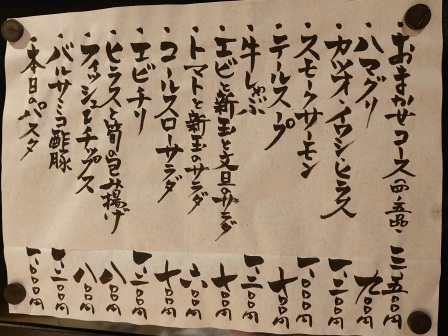 ・おまかせコース 四、五品・ 三、五〇〇円
・ハマグリ 九〇〇円
・カツオ・イワシ・ヒラス 一、二〇〇円
・スモークサーモン 一、〇〇〇円
・テールスープ
・牛しゃぶ 一、二〇〇円
・エビと新玉と文旦のサラダ
・トマトと新玉のサラダ 六〇〇円
・コールスローサラダ
・エビチリ 一、二〇〇円
・ヒラスと筍の包み揚げ 八〇〇円
・フィッシュ&チップス 八〇〇円
・バルサミコ酢豚 一、二〇〇円
・本日のパスタ 一、〇〇〇円